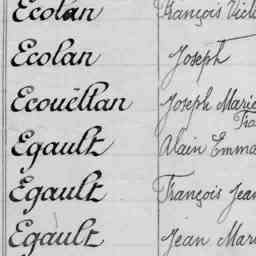 Ecolan François
Ecolan Joseph
Ecouëllan Joseph Marie
Egault Alain Emma
Egault François Jean
Egault Jean Mari